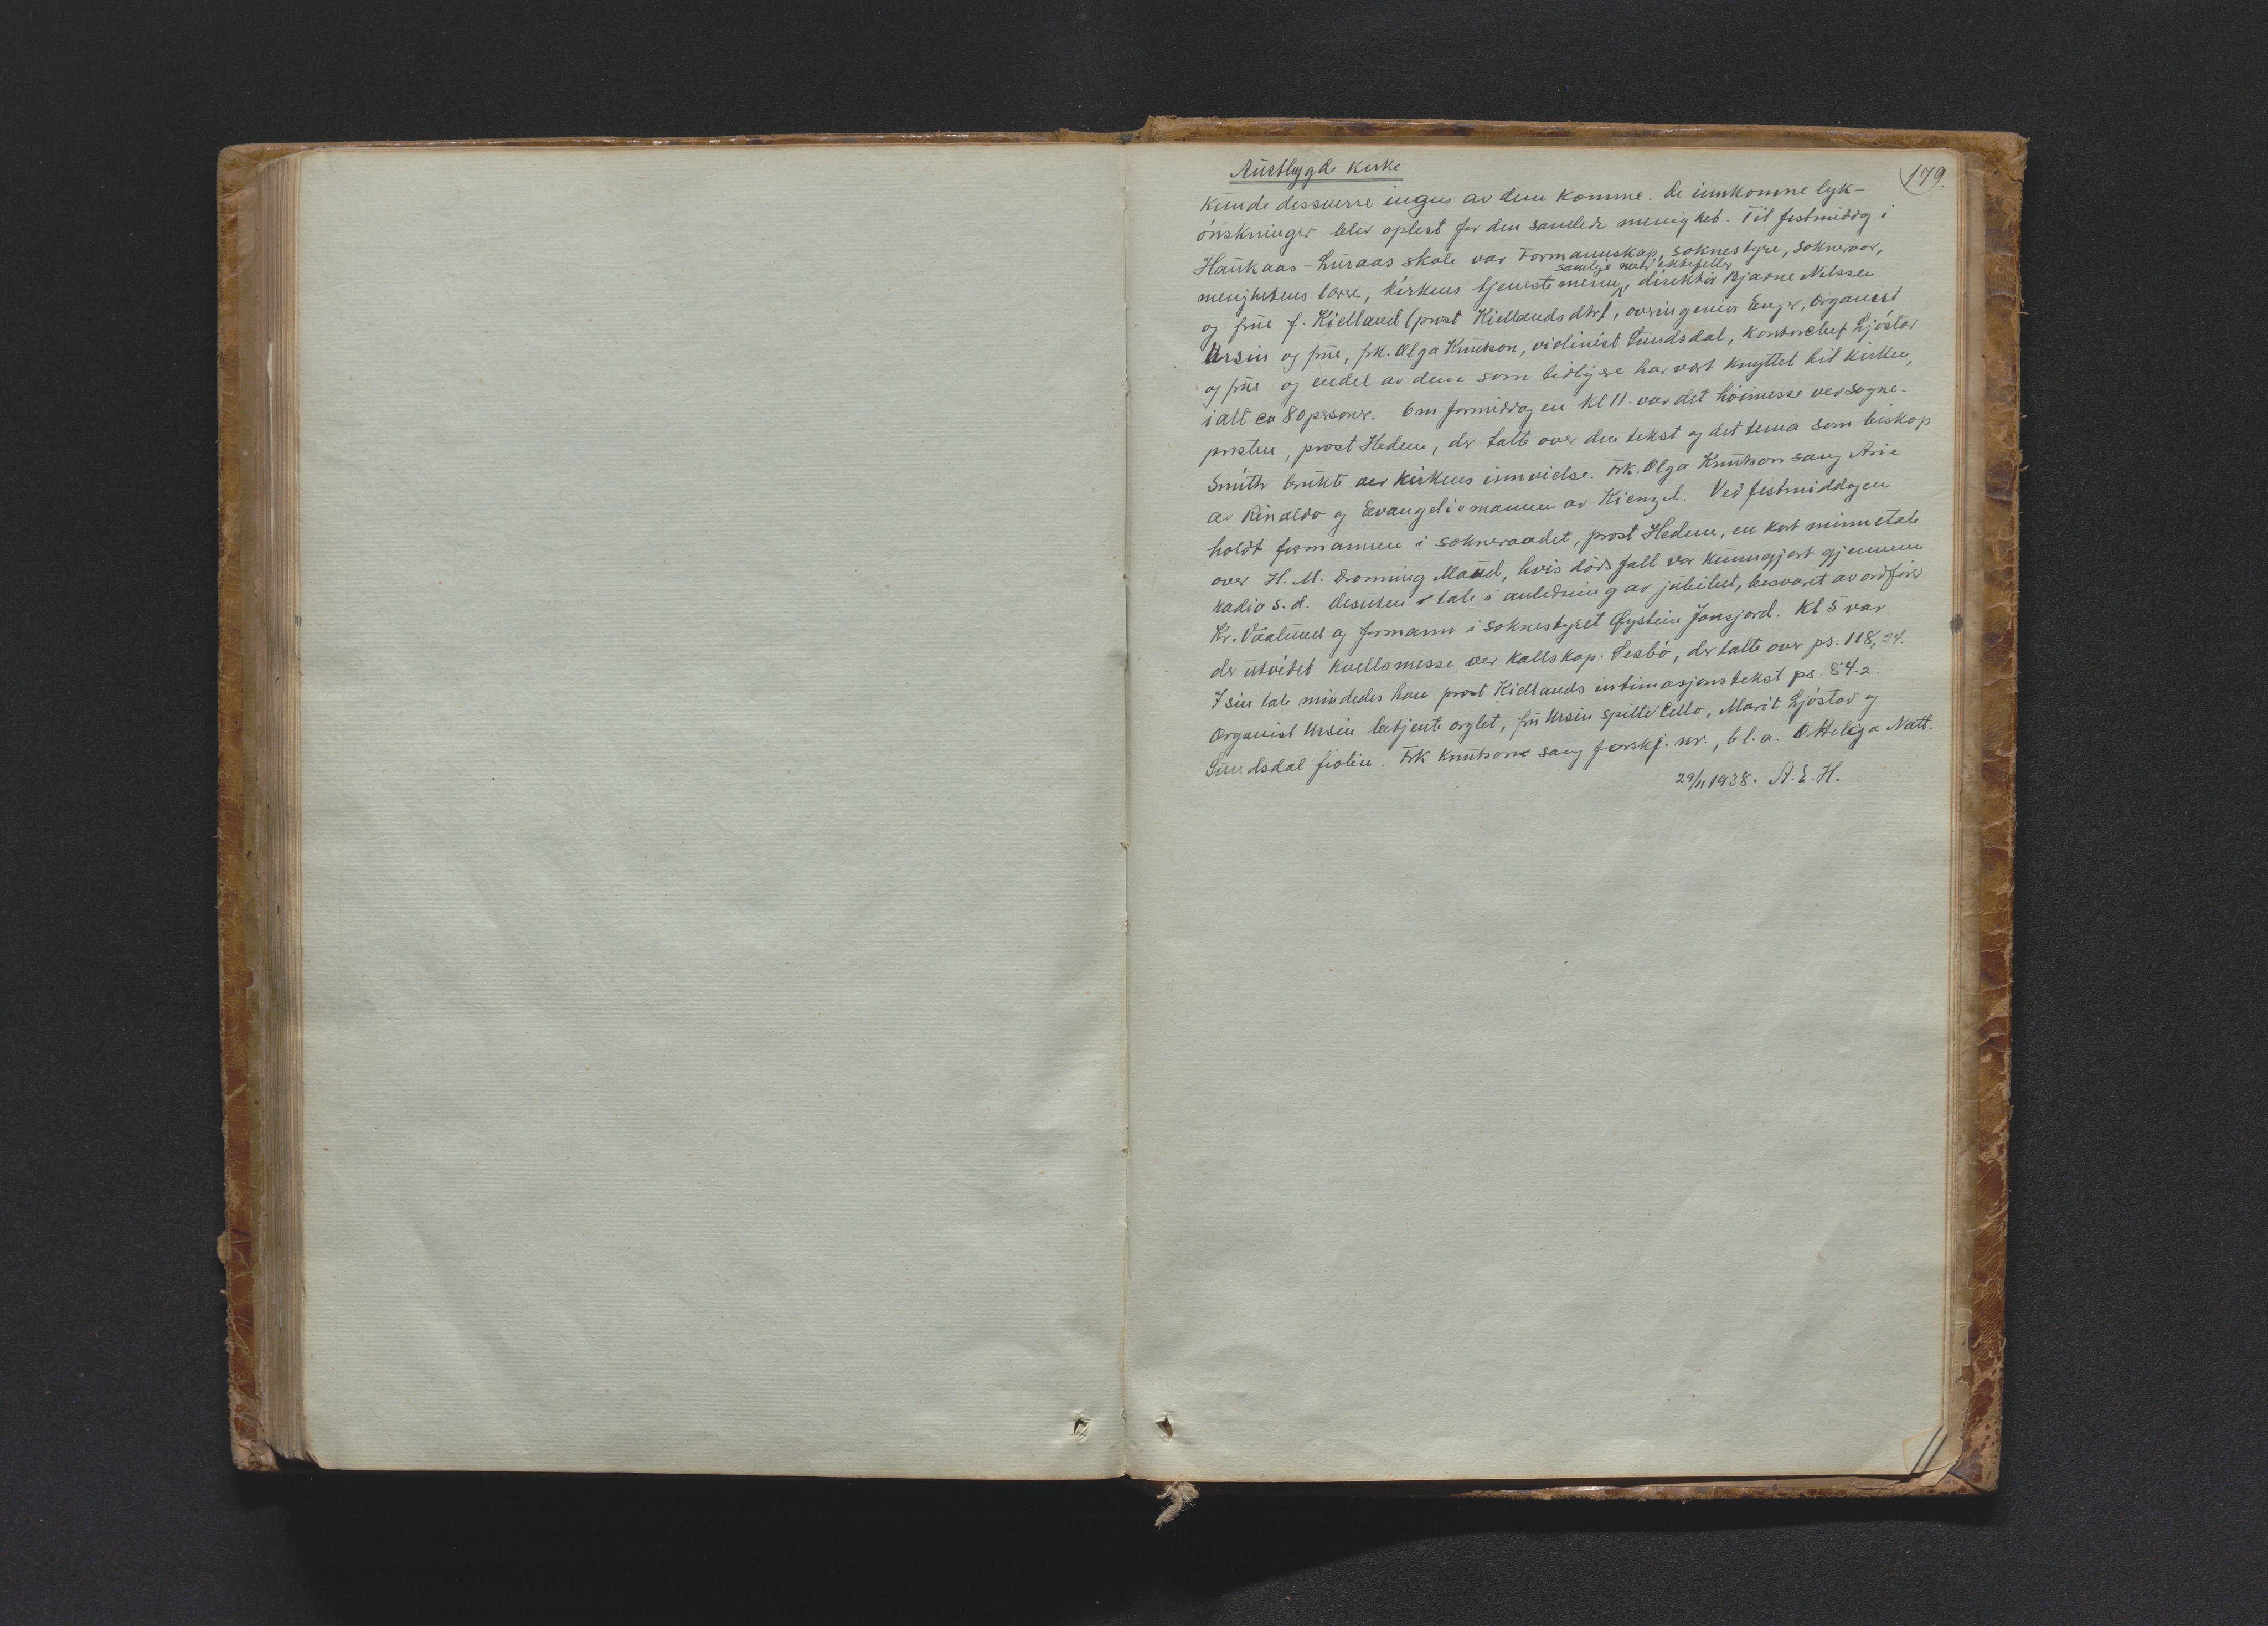 Austbygde Kirke
179.
kunde dessverre ingen av dem komme. De innkomne lyk-
ønskninger blev oplest for den samlede menighet. Til festmiddag i
Haukaas-Luraas skole var Formannskap, soknestyre, sokneraad,
samlige med ektefeller
menighetens lærere, kirkens tjenestemenn, direktør Bjarne Nilssen
og frue f. Kielland (prost Kiellands dtr), overingeniør Enger, Organist
Ursin og frue, frk. Olga Knutson, violinist Sundsdal, kontorchef Ljøstad
og frue og endel av dem som tidligere har vært knyttet til kirken,
ialt ca 80 personer. Om formiddagen kl 11. var det høimesse ved sogne-
presten, prost Hedem, der talte over den tekst og det tema som biskop
Smith brukte ved kirkens innvielse. Frk. Olga Knutson sang Arie
av Rinaldo og Evangeliemannen av Kienzel. Ved festmiddagen
holdt formannen i sokneraadet, prost Hedem, en kort minnetale
over H. M. Dronning Maud, hvis dødsfall var kunngjort gjennem
radio s. d. Desuten tale i anledning av jubileet, besvaret av ordfører
Kr. Vaalund og formann i soknestyret Øystein Jonsjord. Kl 5 var
der utvidet kveldsmesse ved kallskap. Sesbø, der talte over ps. 118, 24.
I sin tale mindedes han prost Kiellands intimasjonstekst ps. 84.2.
Organist Ursin betjente orglet, fru Ursin spilte Cello, Marit Ljøstad og
Sundsdal fiolin. Frk Knutson sang forskj. nr., bl. a. O Heliga Natt.
29/11 1938. A. E. H.